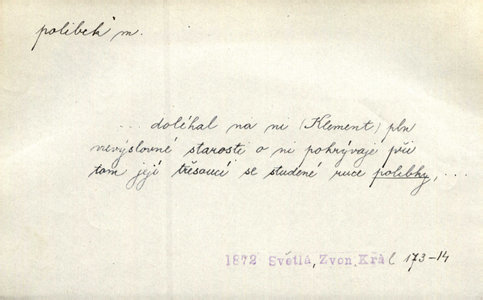 polibek m.
... doléhal na ni (Klement) pln
nevýslovné starosti o ni pokrývaje při
tom její třesoucí se studené ruce polibky, ...
1872 Světlá, Zvon. Král 173-14